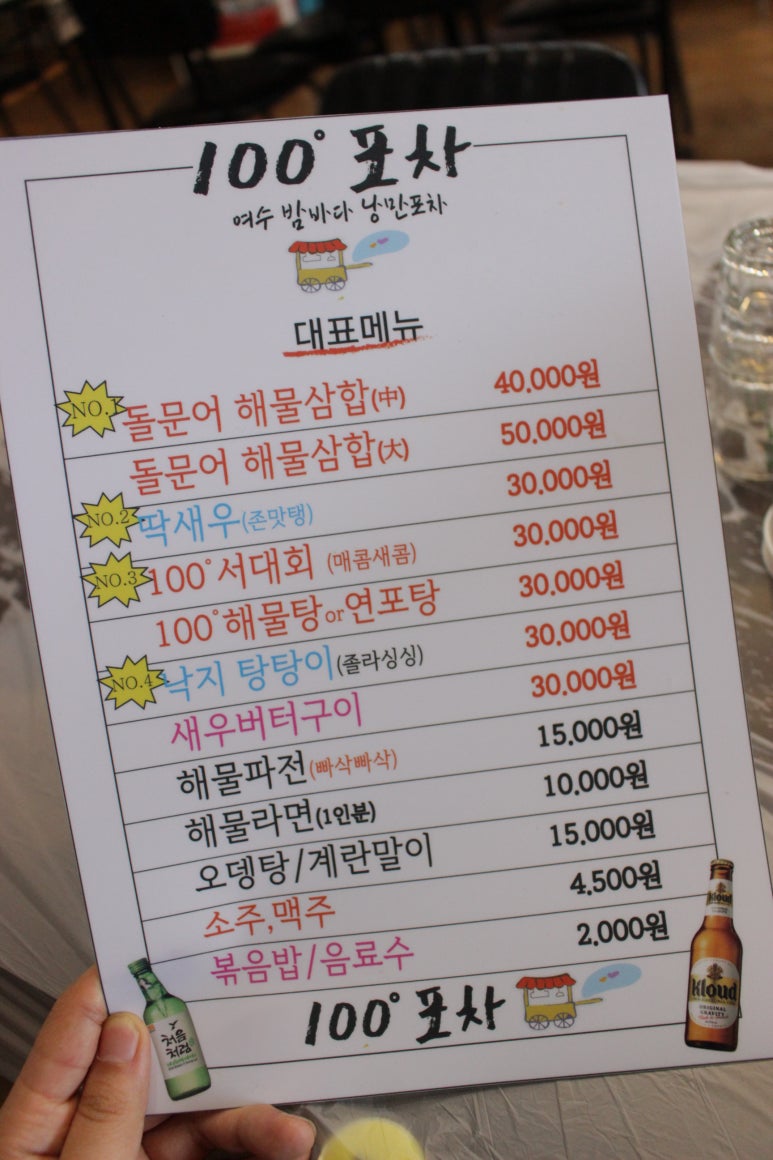 100° 포차
여수 밤바다 낭만포차
대표메뉴
NO.1 돌문어 해물삼합(中) 40,000원
돌문어 해물삼합(大) 50,000원
NO.2 딱새우(존맛탱) 30,000원
NO.3 100°서대회 (매콤새콤) 30,000원
100°해물탕or연포탕 30,000원
NO.4 낙지 탕탕이(졸라싱싱) 30,000원
새우버터구이 30,000원
해물파전(빠삭빠삭) 15,000원
해물라면(1인분) 10,000원
오뎅탕/계란말이 15,000원
소주,맥주 4,500원
볶음밥/음료수 2,000원
100° 포차
처음
처럼
Kloud
ORIGINAL
GRAVITY